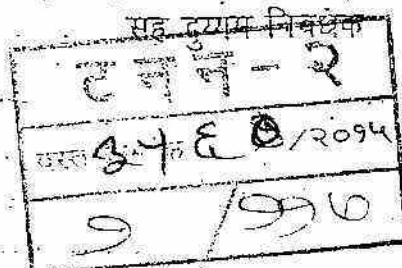 सह दुय्यम निबंधक
ट न न - २
दस्त ३५६७/२०१५
१ / ११७